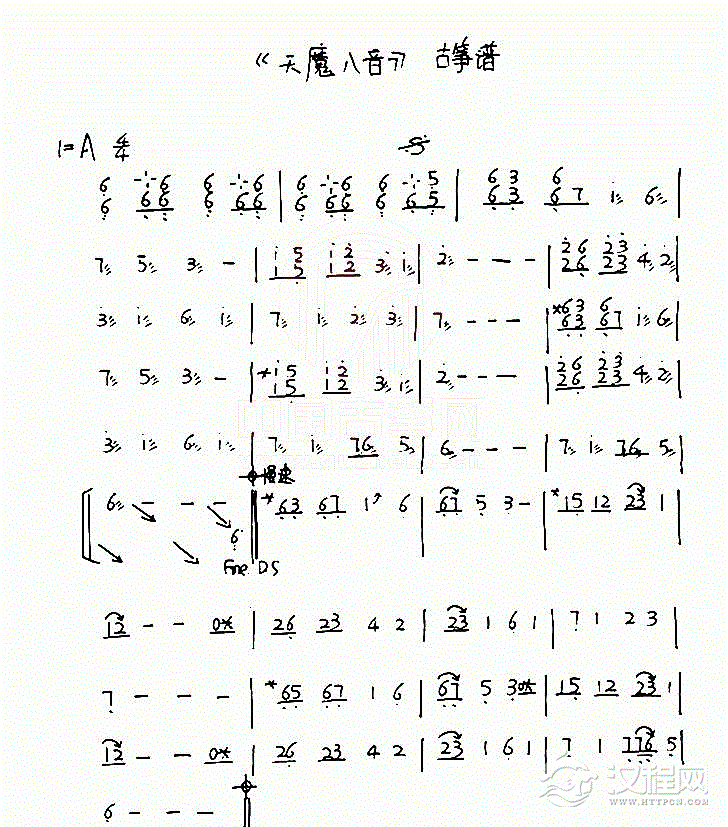 《天魔八音》 古筝谱
1=A 4/4
6 6 6 6 | 6 6 6 5 | 63 6
6 66 6 66 | 6 66 6 65 | 63 67 i 6 |
7 5 3 – | i5 i2 3 i | 2 – – – | 26 23 4 2 |
15 12 26 23
3 i 6 i | 7 i 2 3 | 7 – – – | *63 67 i 6 |
7 5 3 – | *i5 i2 3 i | 2 – – – | 26 23 4 2 |
15 12 26 23
3 i 6 i | 7 i 76 5 | 6 – – – | 7 i 76 5 |
慢速
6 – – – | *63 67 1 6 | 67 5 3 – | *15 12 23 1
6
Fine D.S
12 – – 0* | 26 23 4 2 | 23 1 6 1 | 7 1 2 3 |
7 – – – | *65 67 1 6 | 67 5 3 0* | 15 12 23 1 |
12 – – 0* | 26 23 4 2 | 23 1 6 1 | 7 1 776 5 |
6 – – –
汉程网
WWW.HTTPCN.COM